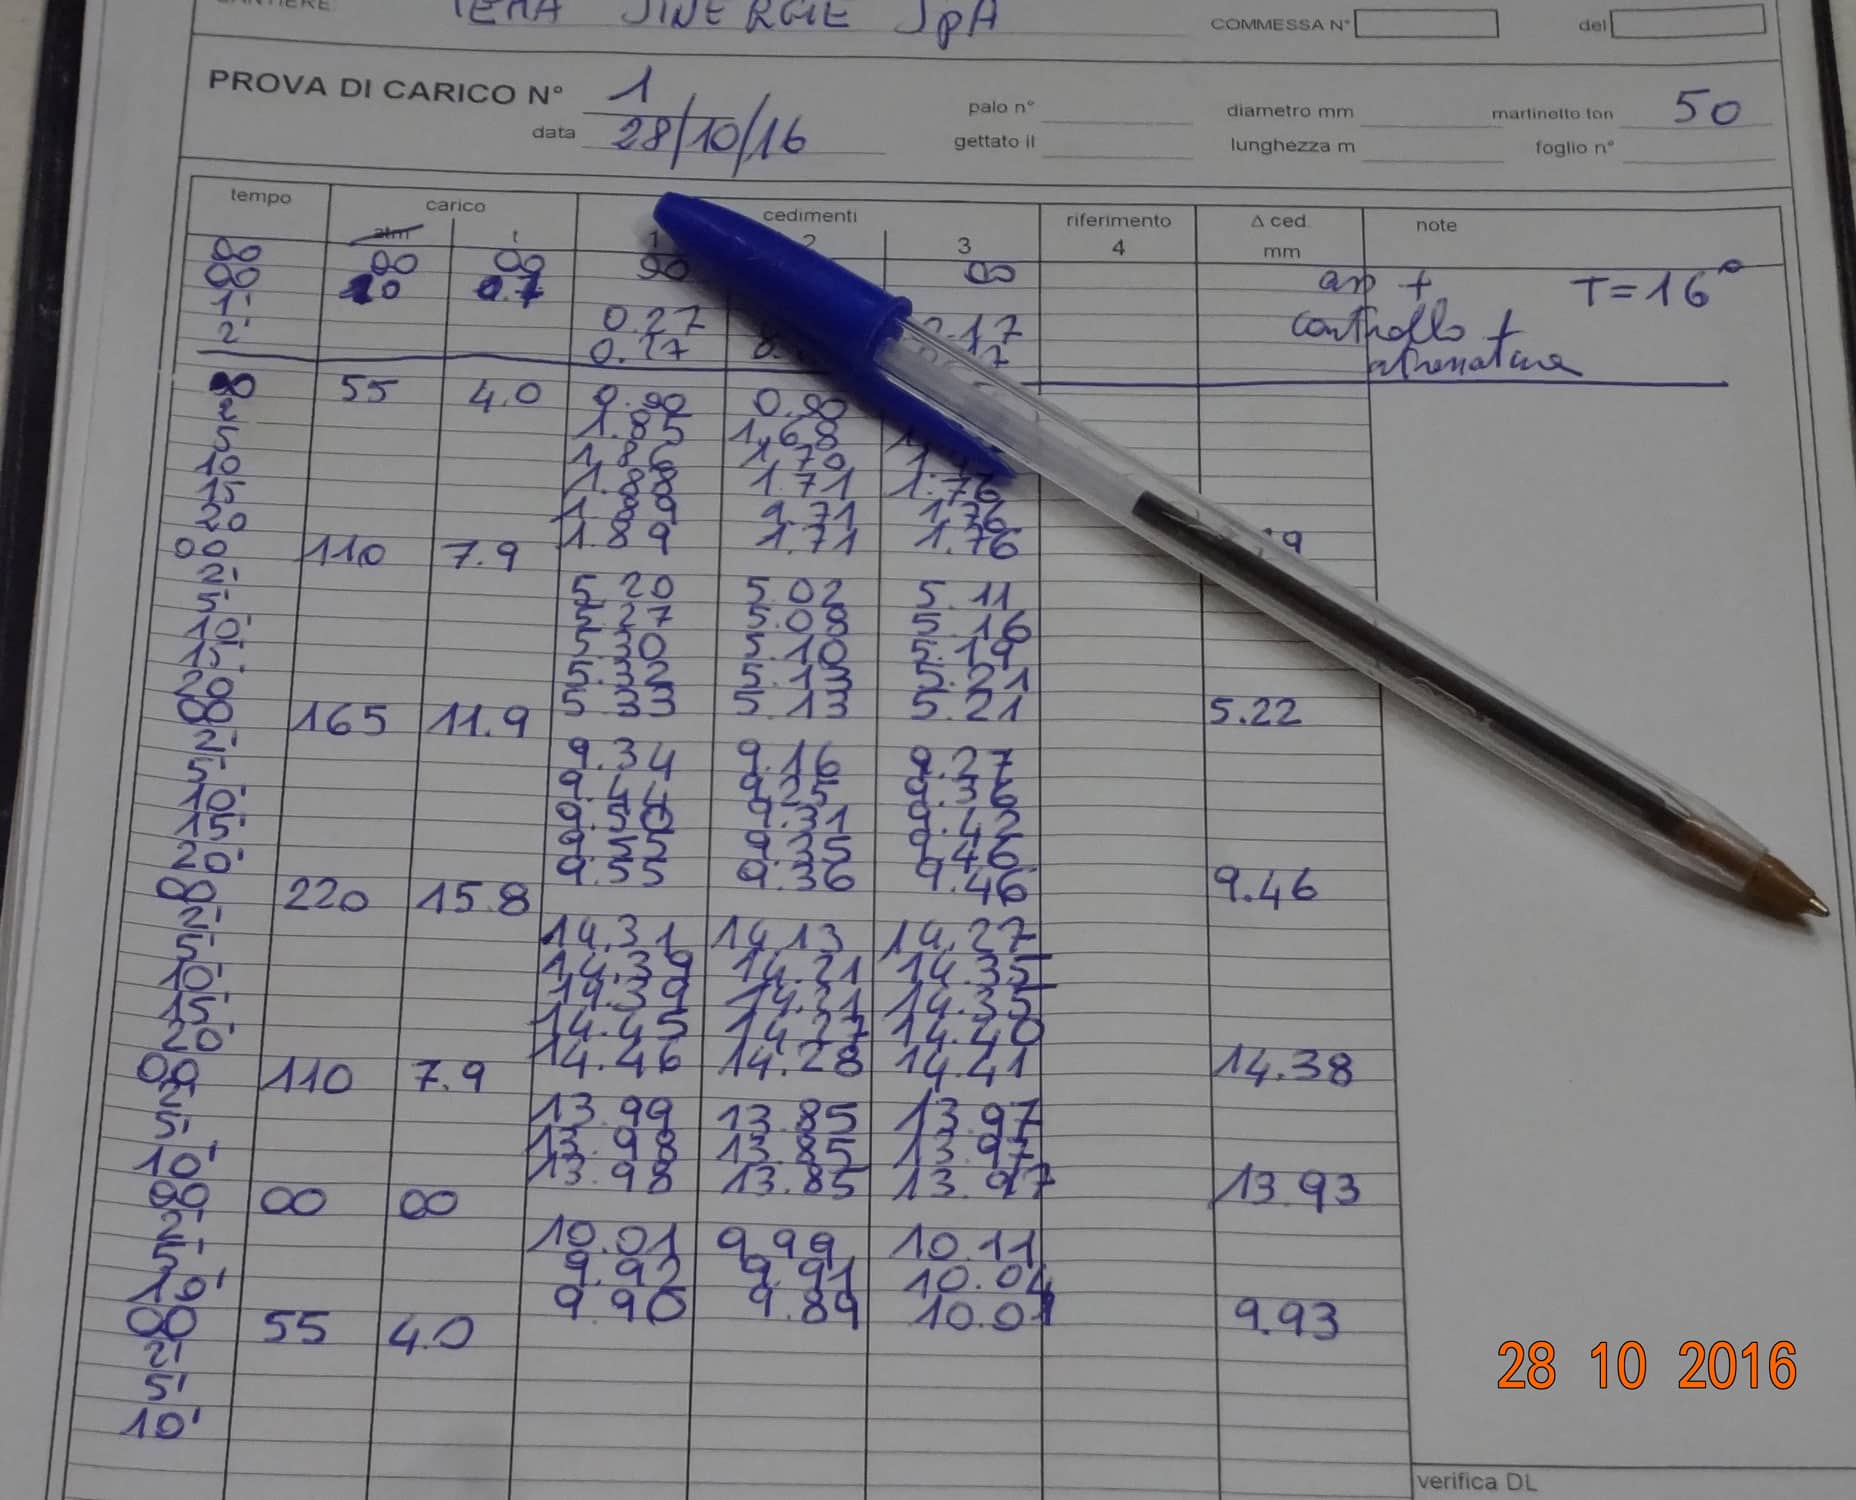 CANTIERE TEMA SINERGIE SpA COMMESSA N° del
PROVA DI CARICO N° 1 palo n° diametro mm martinetto ton 50
data 28/10/16 gettato il lunghezza m foglio n°
tempo carico cedimenti riferimento Δ ced. note
atm t 1 2 3 4 mm
00 00 00 00 00
00 10 0.7 T=16°
1' 0.27 .17 controllo +
2' 0.17
00 55 4.0 0.90 0.90
2 1.85 1.68
5 1.86 1.70
10 1.88 1.71 1.76
15 1.89 1.71 1.76
20 1.89 1.71 1.76
00 110 7.9
2' 5.20 5.02 5.11
5' 5.27 5.08 5.16
10' 5.30 5.10 5.19
15' 5.32 5.13 5.21
20' 5.33 5.13 5.21 5.22
00 165 11.9
2' 9.34 9.16 9.27
5' 9.44 9.25 9.36
10' 9.50 9.31 9.42
15' 9.55 9.35 9.46
20' 9.55 9.36 9.46 9.46
00 220 15.8
2' 14.31 14.13 14.27
5' 14.39 14.21 14.35
10' 14.39 14.21 14.35
15' 14.45 14.27 14.40
20' 14.46 14.28 14.41 14.38
00 110 7.9
2' 13.99 13.85 13.97
5' 13.98 13.85 13.97
10' 13.98 13.85 13.97 13.93
00 00 00
2' 10.01 9.99 10.11
5' 9.92 9.91 10.04
10' 9.90 9.89 10.01 9.93
00 55 4.0
2'
5'
10'
28 10 2016
verifica DL